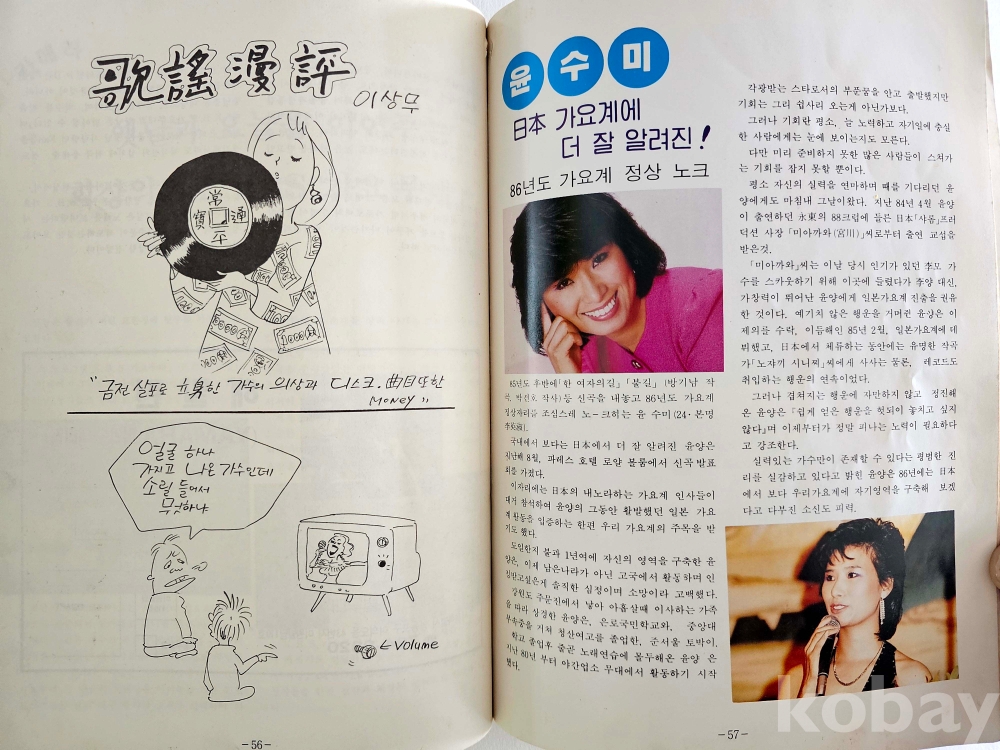 歌謠漫評
이상무
常
寶 通
平
"금전 살포로 立身한 가수의 의상과 디스크. 曲目 또한
MONEY"
얼굴 하나
가지고 나온 가수인데
소릴 들어서
무엇하냐
←volume
-56-
윤수미
日本 가요계에
더 잘 알려진!
86년도 가요계 정상 노크
85년도 후반에 「한 여자의길」 「불길」 (방기남 작
석, 박건호 작사) 등 신곡을 내놓고 86년도 가요계
정상자리를 조심스레 노-크하는 윤 수미 (24·본명
국내에서 보다는 日本에서 더 잘 알려진 윤양은
지난해 8월, 파레스 호텔 로얄 볼룸에서 신곡발표
회를 가졌다.
이자리에는 日本의 내노라하는 가요계 인사들이
대거 참석하여 윤양의 그동안 활발했던 일본 가요
계 활동을 입증하는 한편 우리 가요계의 주목을 받
기도 했다.
도일한지 불과 1년여에 자신의 영역을 구축한 윤
양은, 이제 남은나라가 아닌 고국에서 활동하며 인
정받고싶은게 솔직한 심정이며 소망이라 고백했다.
강원도 주문진에서 낳아 아홉살때 이사하는 가족
을 따라 상경한 윤양은, 은로국민학교와, 중앙대
부속중을 거쳐 청산여고를 졸업한, 순서울 토박이.
학교 졸업후 줄곧 노래연습에 몰두해온 윤양 은
지난 80년 부터 야간업소 무대에서 활동하기 시작
했다.
각광받는 스타로서의 부푼꿈을 안고 출발했지만
기회는 그리 쉽사리 오는게 아닌가보다.
그러나 기회란 평소, 늘 노력하고 자기일에 충실
한 사람에게는 눈에 보이는지도 모른다.
다만 미리 준비하지 못한 많은 사람들이 스쳐가
는 기회를 잡지 못할 뿐이다.
평소 자신의 실력을 연마하며 때를 기다리던 윤
양에게도 마침내 그날이왔다. 지난 84년 4월 윤양
이 출연하던 永東의 88크럽에 들른 日本 「사롱」프러
덕션 사장 「미아까와(宮川)」씨로부터 출연 교섭을
받은것.
「미아까와」씨는 이날 당시 인기가 있던 李모 가
수를 스카웃하기 위해 이곳에 들렸다가 李양 대신,
가창력이 뛰어난 윤양에게 일본가요계 진출을 권유
한 것이다. 예기치 않은 행운을 거머쥔 윤양은 이
제의를 수락, 이듬해인 85년 2월, 일본가요계에 데
뷔했고, 日本에서 체류하는 동안에는 유명한 작곡
가 「노자끼 시니찌」씨에게 사사는 물론, 레코드도
취입하는 행운의 연속이었다.
그러나 겹쳐지는 행운에 자만하지않고 정진해
온 윤양은 「쉽게 얻은 행운을 헛되이 놓치고 싶지
않다」며 이제부터가 정말 피나는 노력이 필요하다
고 강조한다.
실력있는 가수만이 존재할 수 있다는 평명한 진
리를 실감하고 있다고 밝힌 윤양은 86년에는 日本
에서 보다 우리가요계에 자기영역을 구축해 보겠
다고 다부진 소신도 피력.
-57-
kobay